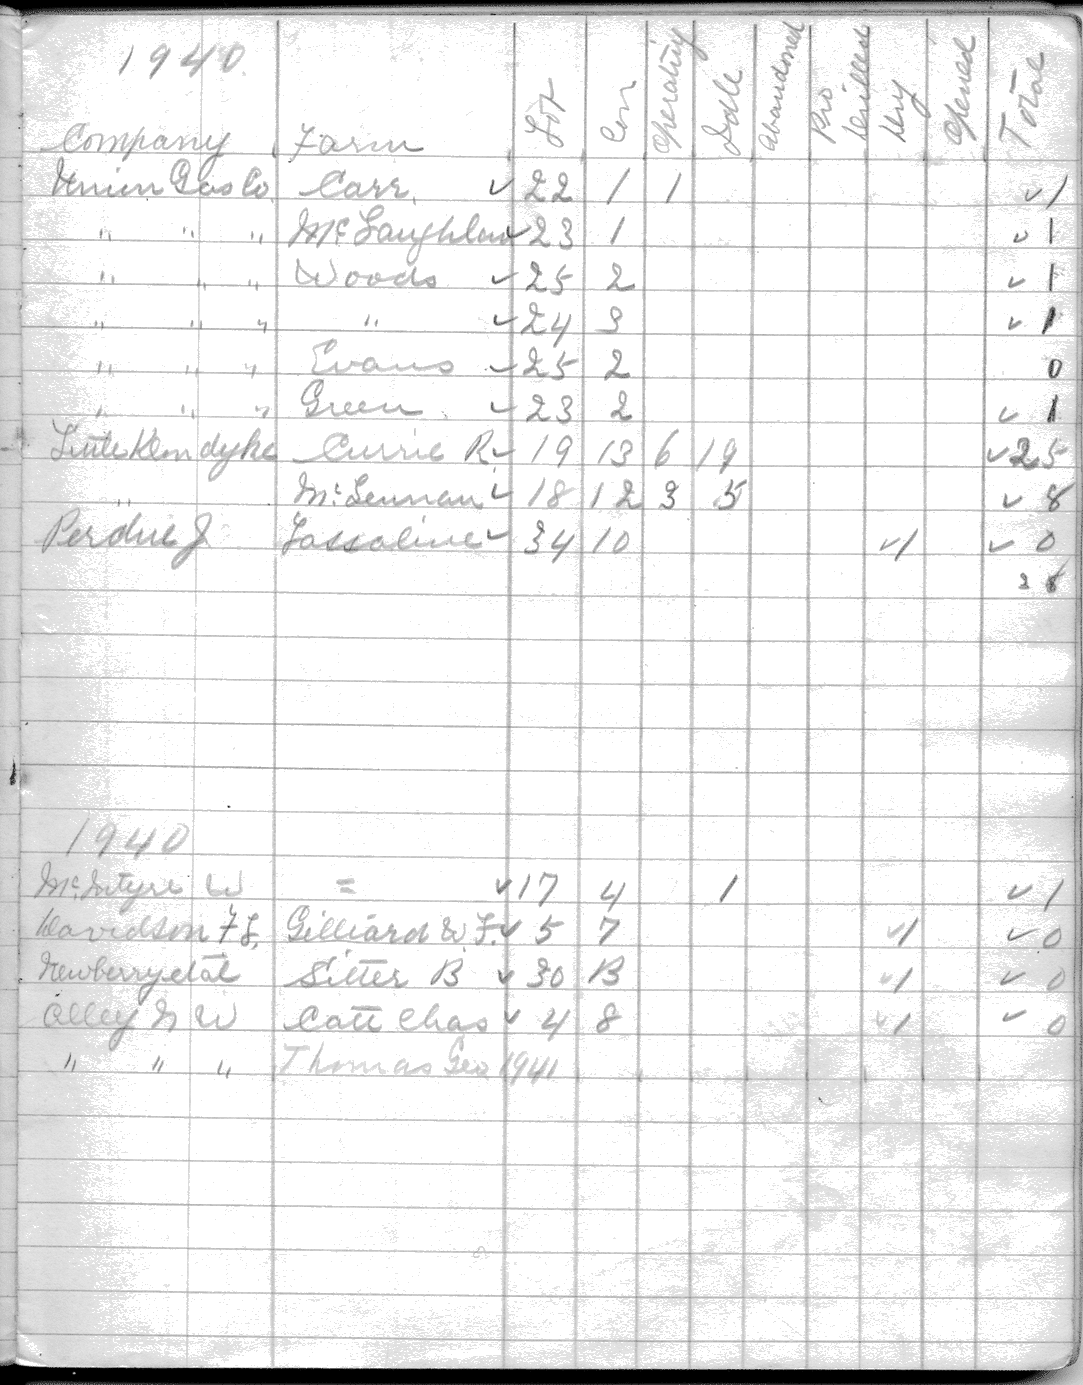 1940
Company Farm Lot Con Operating Idle Abandoned Drilled Dry Opened Total
Union Gas Co. Carr. ✓ 22 1 1 ✓ 1
" " " McLaughlin ✓ 23 1 ✓ 1
" " " Woods ✓ 25 2 ✓ 1
" " " " ✓ 24 3 ✓ 1
" " " Evans ✓ 25 2 0
" " " Green ✓ 23 2 ✓ 1
Little Klondyke Currie R. ✓ 19 13 6 19 ✓ 25
" McLennan ✓ 18 12 3 5 ✓ 8
Perdue J Lassaline ✓ 34 10 ✓ 1 ✓ 0
38
1940
McIntyre W = ✓ 17 4 1 ✓ 1
Davidson F L. Gilliard W. F. ✓ 5 7 ✓ 1 ✓ 0
Newberry et al Sitter B ✓ 30 B ✓ 1 ✓ 0
Alley W Catt Chas ✓ 4 8 ✓ 1 ✓ 0
" " " Thomas Geo 1941